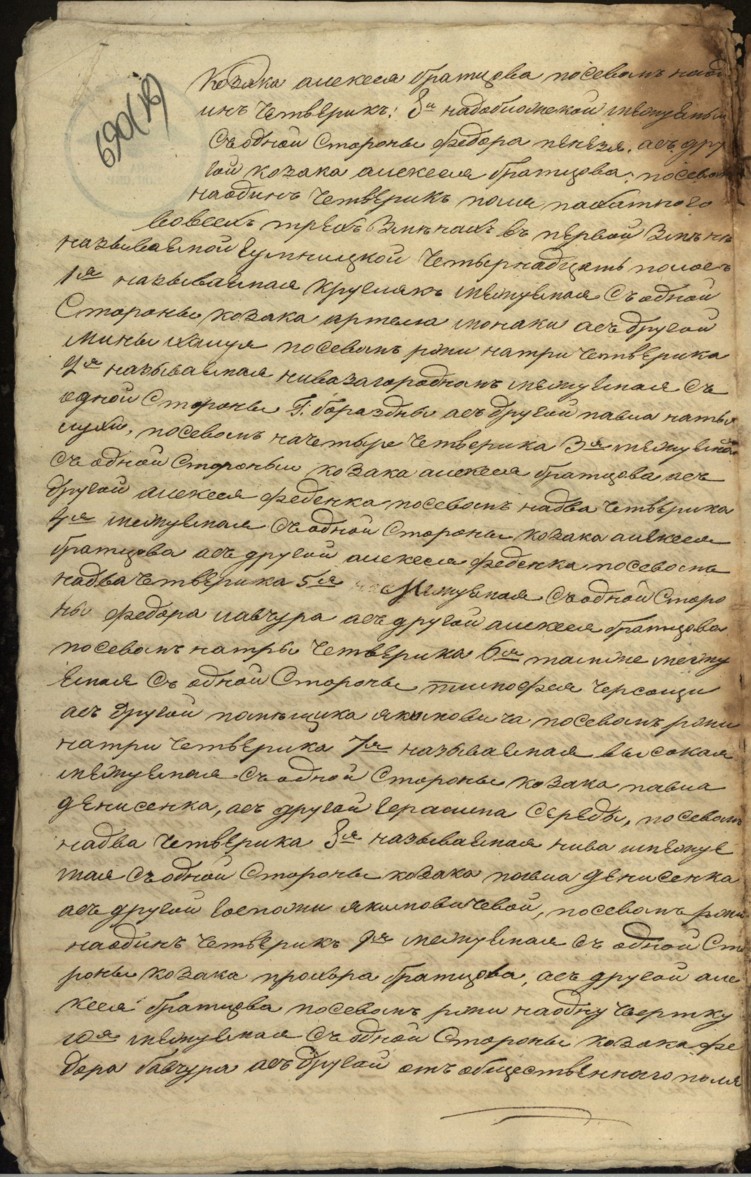 690(16)
козака алексея братцова посевомъ наод
инъ четверикъ: 8я надоболожской межуемый
съодной Стороны федора пенезя, асъ дру
гой козака алексея братцова, посевомъ
наодинъ четверикъ поля пахатного
вовсехъ трехъ змѣнахъ въ первой змѣнѣ
называемой Гумнищкой четырнадцать полосъ
1я называемая кругликъ межуемая съ одной
Стороны козака артема монаки асъ другой
мины посевомъ ржи натри четверика
2я называемая нивазагородномъ межуемая съ
одной Стороны Г. борозды асъ другой павла
посевомъ начетыре четверика 3я межуемая
съ одной Стороны козака алексея братцова асъ
другой алексея феденка посевомъ надва четверика
4я межуемая съ одной Стороны козака алексея
братцова асъ другой алексея феденка посевомъ
надва четверика 5я межуемая съодной Сторо
ны федора лавчура асъ другой алексея братцова
посевомъ натры четверика 6я межу
емая съ одной Стороны тимофея
асъ другой помѣщика якимовича посевомъ ржи
натри четверика 7я называемая высокая
межуемая съ одной Стороны козака павла
денисенка, асъ другой Герасима Середы, посевомъ
надва четверика 8я называемая нива межуе
мая съ одной Стороны козака павла денисенка
асъ другой Госпожи якимовичевой, посевомъ ржи
наодинъ четверикъ 9я межуемая съ одной Сто
роны козака братцова, асъ другой але
ксея братцова посевомъ ржи наодну чвертку
10я межуемая съ одной Стороны козака фе
дора бавчура асъ другой отъ общественного поля